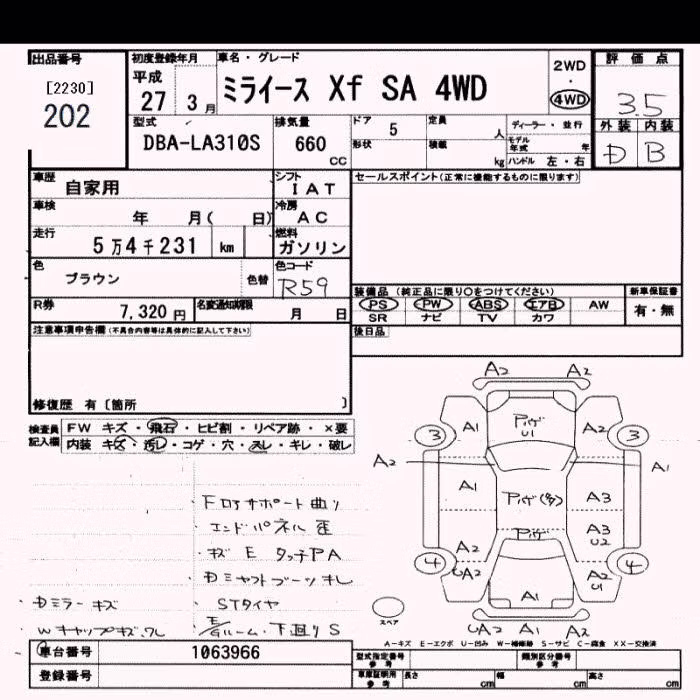 出品番号
[2230]
202
初度登録年月
平成
27 3月
車名・グレード
ミライース Xf SA 4WD
2WD
・
4WD
評価点
3.5
外装 内装
D B
型式
DBA-LA310S
排気量
660
CC
ドア
5
定員
人
形状
積載
kg
ディーラー・並行
モデル年式 年
ハンドル 左・右
車歴
自家用
シフト
IAT
車検
年 月( 日)
冷房
AC
走行
5万4千231 km
燃料
ガソリン
色
ブラウン
色替
色コード
R59
R券
7,320円
名変通知期限
月 日
セールスポイント(正常に機能するものに限ります)
装備品(純正品に限り○をつけてください)
PS PW ABS エアB AW
SR ナビ TV カワ
新車保証書
有・無
後日品
注意事項申告欄(不具合内容等は具体的に記入して下さい)
修復歴 有〔箇所 〕
検査員記入欄
FW キズ・飛石・ヒビ割・リペア跡・×要
内装 キズ・汚レ・コゲ・穴・スレ・キレ・破レ
・FロアサポートB曲り
・エンドパネル歪
・キズ E タッチPA
・Dミラーキズ
・STタイヤ
・Wキャップキズ、ワレ
・E/Gルーム・下廻りS
A2 A2
A1 A2
3 3
A2 A1
A1 A3
A3
U2
A2
UA2
4 4
A2
U1
A1
UA2 A1 A2
スペア
A-キズ E-エクボ U-凹み W-補修跡 S-サビ C-腐食 XX-交換済
車台番号
1063966
登録番号
型式指定番号
参考
類別区分番号
参考
車庫証明用
参考
長さ cm 幅 cm 高さ cm